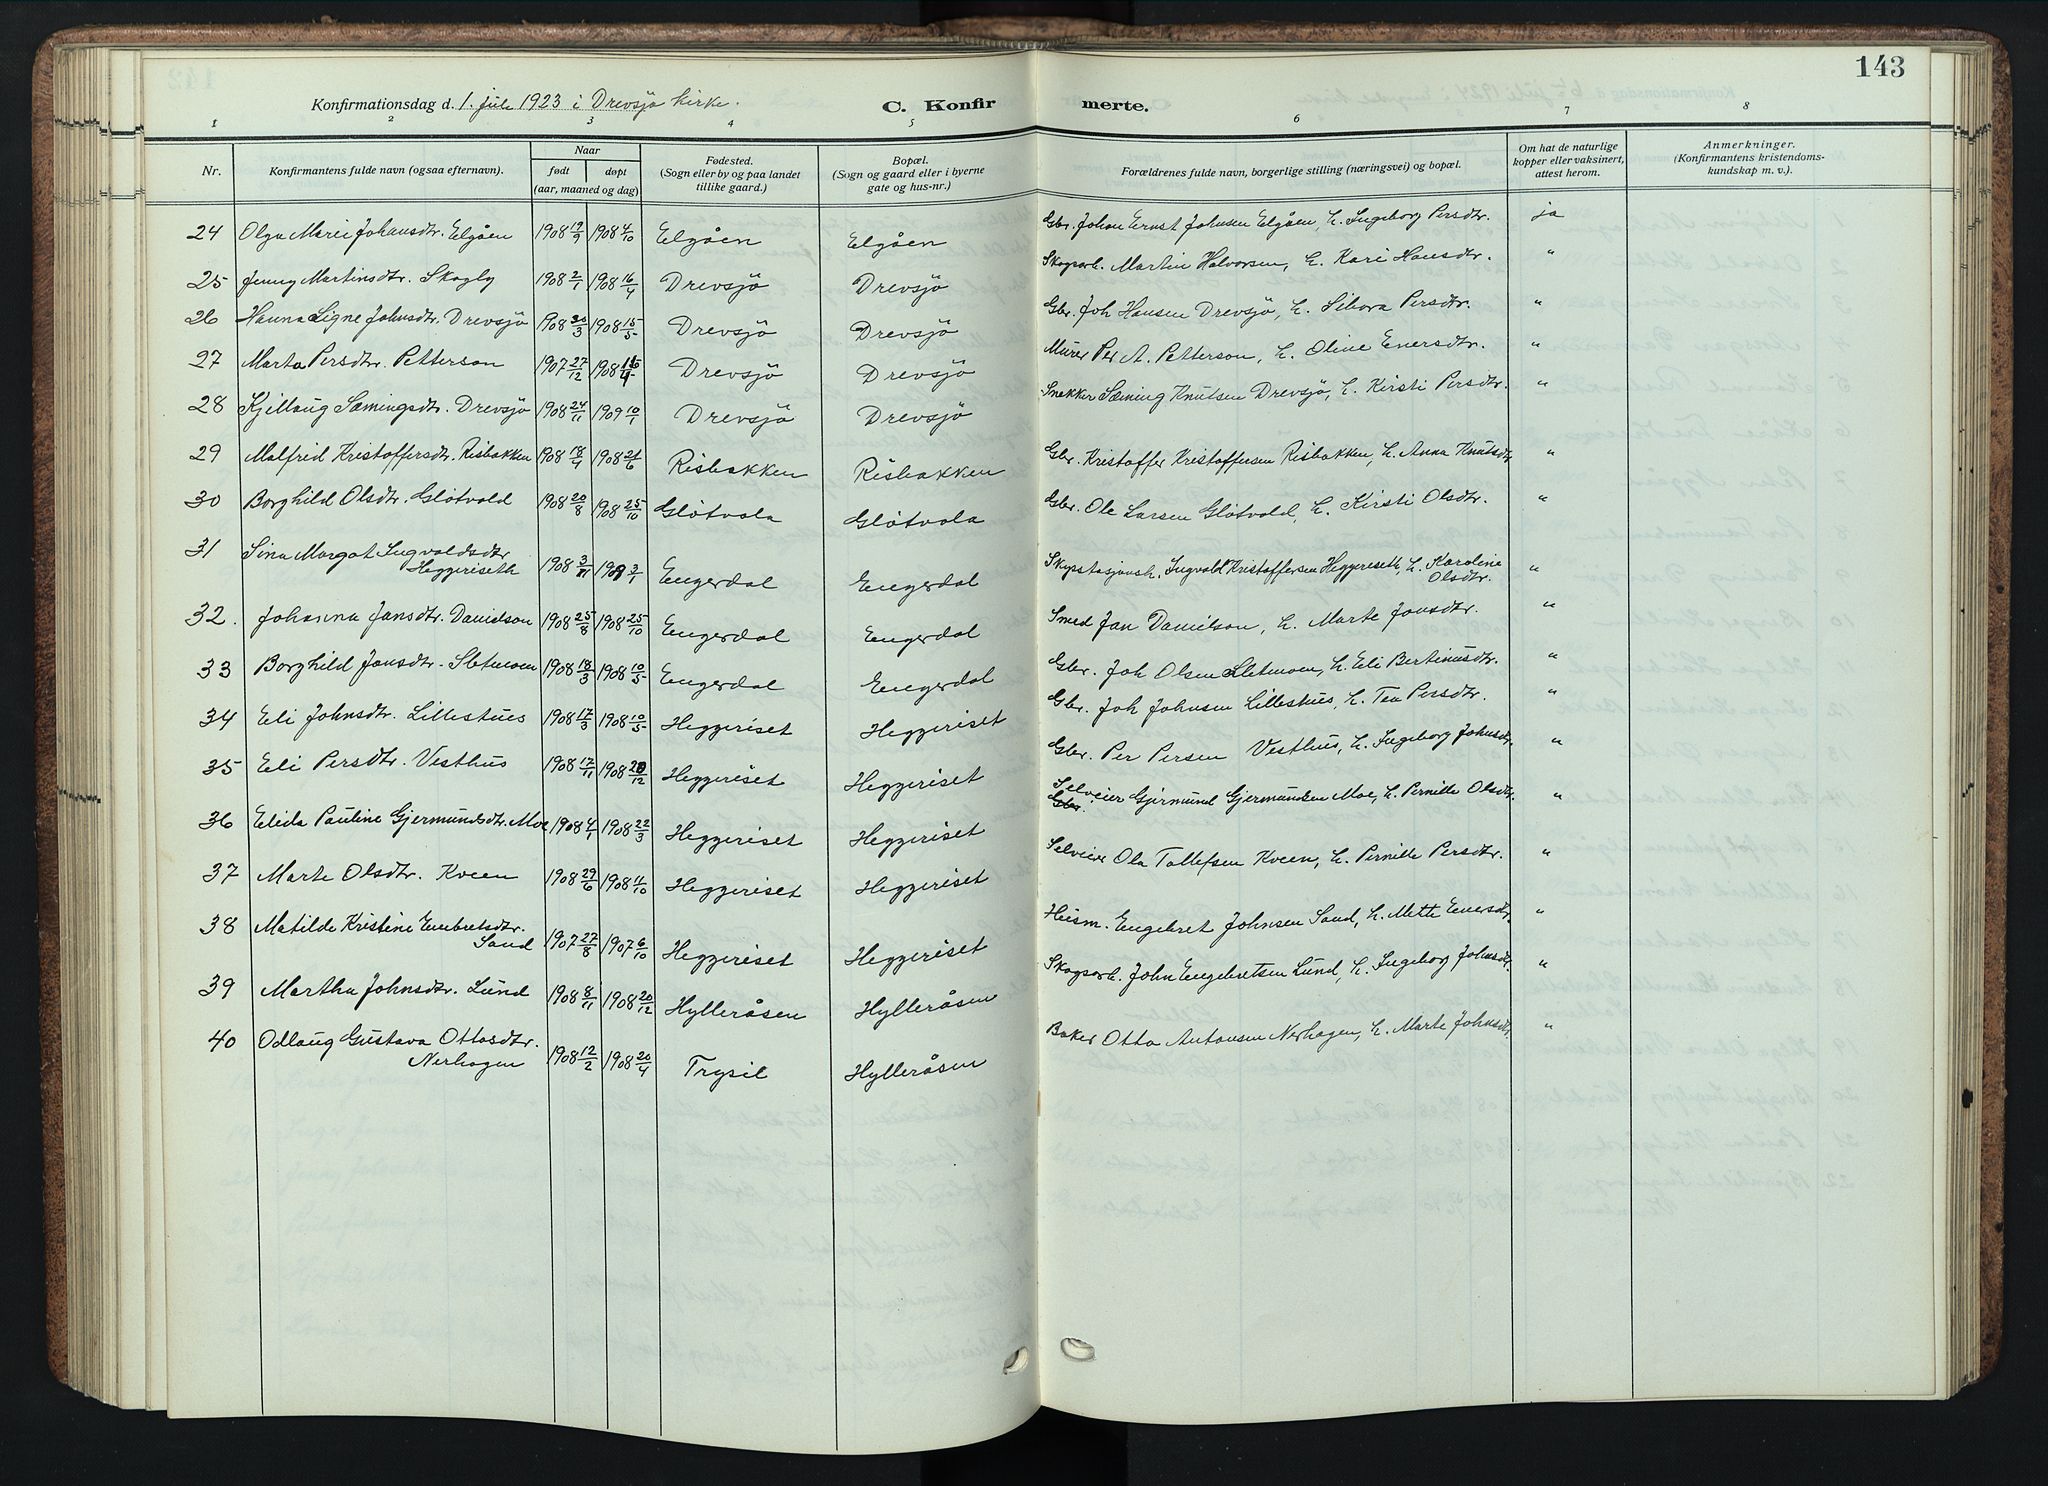 143
Konfirmationsdag d. 1. juli 1923 i Drevsjø kirke. C. Konfir merte.
1 2 3 4 5 6 7 8
Nr. Konfirmantens fulde navn (ogsaa efternavn). Naar født døpt (aar, maaned og dag) Fødested. (Sogn eller by og paa landet tillike gaard.) Bopæl. (Sogn og gaard eller i byerne gate og hus-nr.) Forældrenes fulde navn, borgerlige stilling (næringsvei) og bopæl. Om hat de naturlige kopper eller vaksinert, attest herom. Anmerkninger. (Konfirmantens kristendoms-kundskap m. v.)
24 Olga Marie Johansdtr. Elgåen 1908 19/9 1908 4/10 Elgåen Elgåen Gbr. Johan Ernst Johnsen Elgåen, h. Ingeborg Persdtr. ja
25 Jenny Martinsdtr. Skogly 1908 2/1 1908 16/4 Drevsjö Drevsjö Skogsarb. Martin Halvorsen, h. Kari Hansdtr. "
26 Hanna Signe Johnsdtr. Drevsjö 1908 30/3 1908 15/5 Drevsjö Drevsjö Gbr. Joh Hansen Drevsjö, h. Sibora Persdtr. "
27 Marta Persdtr. Petterson 1907 27/12 1908 Drevsjö Drevsjö Murer Per A. Petterson, h. Oline Enersdtr. "
28 Kjellaug Sæmingsdtr. Drevsjö 1908 24/11 1909 10/1 Drevsjö Drevsjö Snekker Sæming Knutsen Drevsjö, h. Kirsti Persdtr. "
29 Malfrid Kristoffersdtr. Risbakken 1908 18/4 1908 21/6 Risbakken Risbakken Gbr. Kristoffer Kristoffersen Risbakken, h. Anna Knutsdtr "
30 Borghild Olsdtr. Glötvold 1908 20/8 1908 25/10 Glötvola Glötvola Gbr. Ole Larsen Glötvold, h. Kirsti Olsdtr. "
31 Sina Margot Ingvaldsdtr
Heggeriseth 1908 3/11 1909 3/1 Engerdal Engerdal Skysstasjonsh. Ingvald Kristoffersen Heggeriseth, h. Karoline "
Olsdtr.
32. Johanna Jansdtr. Danielson 1908 25/8 1908 25/10 Engerdal Engerdal Smed Jan Danielson, h. Marte Jonsdtr. "
33 Borghild Jonsdtr. Sletmoen 1908 18/3 1908 10/5 Engerdal Engerdal Gbr. Joh Olsen Sletmoen, h. Eli Bertinusdtr. "
34 Eli Johnsdtr. Lillestues 1908 17/3 1908 10/5 Heggeriset Heggeriset Gbr. Joh Johnsen Lillestues, h. Tea Persdtr. "
35 Eli Persdtr. Vesthus 1908 17/11 1908 20/12 Heggeriset Heggeriset Gbr. Per Persen Vesthus, h. Ingeborg Johnsdtr. "
36 Elida Pauline Gjermundsdtr. Moe 1908 4/1 1908 22/3 Heggeriset Heggeriset Selveier Gjermund Gjermundsen Moe, h. Pernille Olsdtr. "
Gbr.
37 Marte Olsdtr. Kveen 1908 29/6 1908 11/10 Heggeriset Heggeriset Selveier Ola Tollefsen Kveen, h. Pernille Persdtr. "
38 Matilde Kristine Embretsdtr.
Sand 1907 27/8 1907 6/10 Heggeriset Heggeriset Husm. Engebret Johnsen Sand, h. Mette Enersdtr. "
39 Martha Johnsdtr. Lund 1908 8/11 1908 20/12 Hylleråsen Hylleråsen Skogsarb. John Engebretsen Lund, h. Ingeborg Johnsdtr. "
40 Odlaug Gustava Ottosdtr.
Nerhagen 1908 12/2 1908 20/4 Trysil Hylleråsen Baker Otto Antonsen Nerhagen, h. Marte Johnsdtr. "